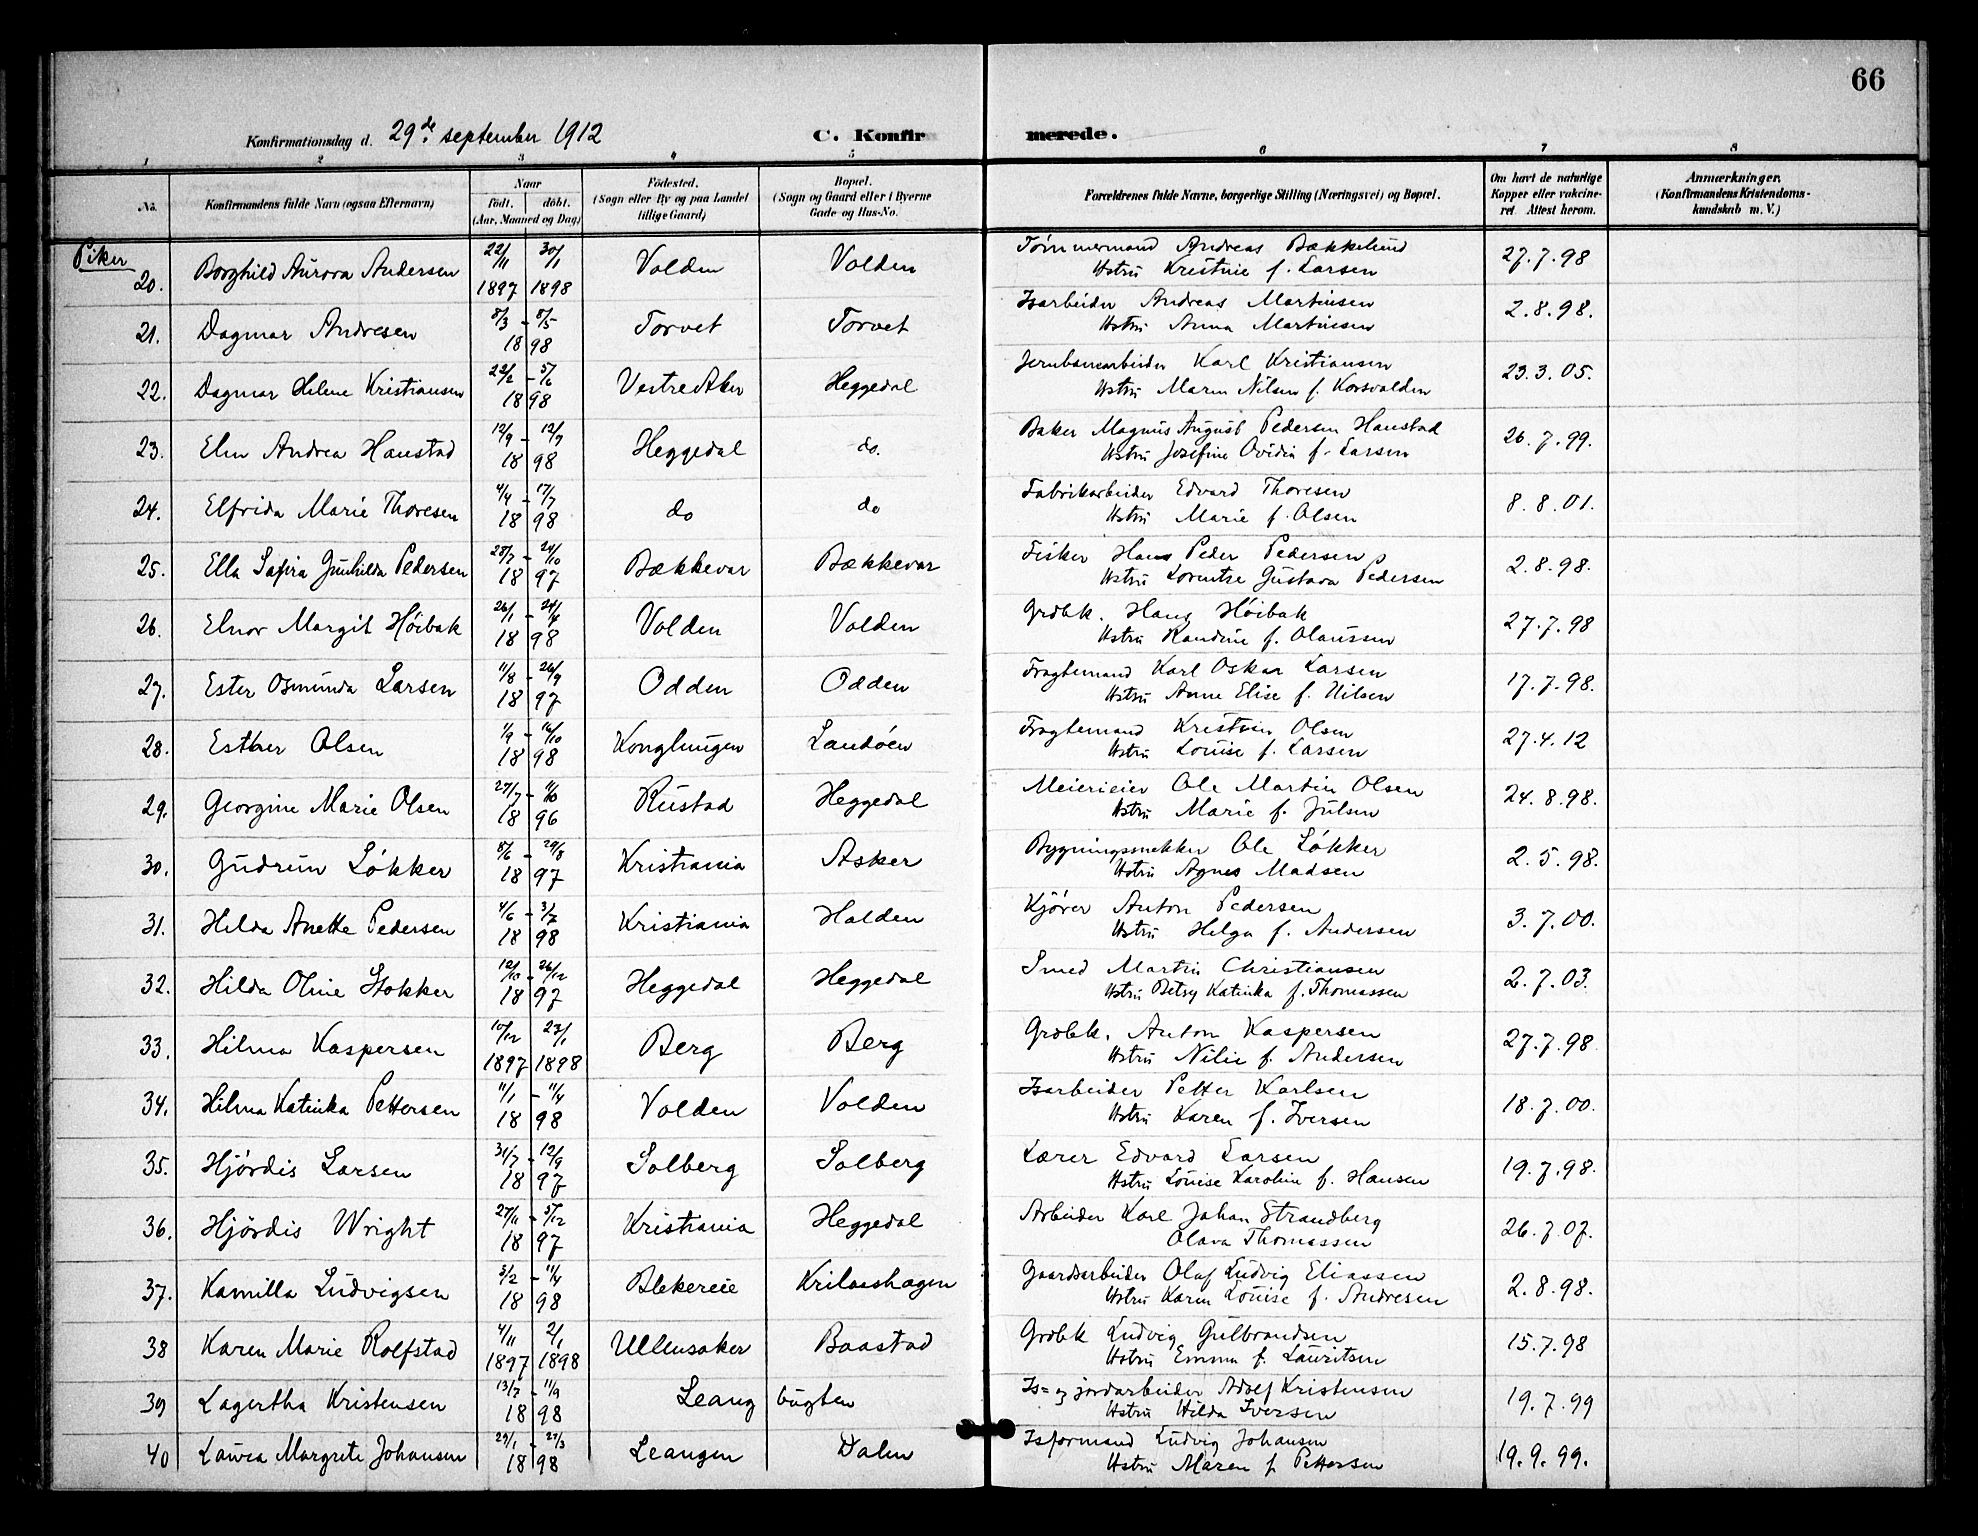 66
Konfirmationsdag d. 29de september 1912 C. Konfirmerede.
1 2 3 4 5 6 7 8
No. Konfirmandens fulde Navn (ogsaa Efternavn) Naar födt. döbt. (Aar, Maaned og Dag) Födested. (Sogn eller By og paa Landet tillige Gaard) Bopæl. (Sogn og Gaard eller i Byerne Gade og Hus-No. Forældrenes fulde Navne, borgerlige Stilling (Næringsvei) og Bopæl. Om havt de naturlige Kopper eller vakcineret Attest herom. Anmærkninger. (Konfirmandens Kristendomskundskab m. V.)
Piker
20. Borghild Aurora Andersen 22/11 1897 30/1 1898 Volden Volden Tømmermand Andreas Bækkelund
Hstru Kristine f. Larsen 27.7.98
21. Dagmar Andresen 8/3 - 8/5 1898 Torvet Torvet Isarbeider Andreas Martinsen
Hstru Anna Martinsen 2.8.98.
22. Dagmar Helene Kristiansen 22/2 - 5/6 1898 Vestre Aker Heggedal Jernbanearbeider Karl Kristiansen
Hstru Maren Nilsen f. Korsvolden 23.3.05.
23. Elin Andrea Hanstad 12/9 - 12/9 1898 Heggedal do. Baker Magnus August Pedersen Hanstad
Hstru Josefine Ovidia f. Larsen 26.7.99.
24. Elfrida Marie Thoresen 4/4 - 17/7 1898 do do Fabrikarbeider Edvard Thoresen
Hstru Marie f. Olsen 8.8.01.
25. Ella Safira Gunhilda Pedersen 28/7 - 24/10 1897 Bækkevar Bækkevar Fisker Hans Peder Pedersen
Hstru Lorentse Gustava Pedersen 2.8.98.
26. Elnor Margit Höibak 26/1 - 24/4 1898 Volden Volden Grdbk. Hans Höibak
Hstru Randine f. Olaussen 27.7.98
27. Ester Osmunda Larsen 11/8 - 26/9 1897 Odden Odden Fragtemand Karl Oskar Larsen
Hstru Anne Elise f. Nilsen 17.7.98.
28. Esther Olsen 1/9 - 16/10 1898 Konglungen Landöen Fragtemand Kristian Olsen
Hstru Louise f. Larsen 27.4.12
29. Georgine Marie Olsen 27/7 - 11/10 1896 Rustad Heggedal Meierieier Ole Martin Olsen
Hstru Marie f. Julsen 24.8.98.
30. Gudrun Lökker 8/6 - 29/8 1897 Kristiania Asker Bygningssnekker Ole Lökker
Hstru Agnes Madsen 2.5.98.
31. Hilda Anette Pedersen 4/6 - 3/7 1898 Kristiania Holden Kjörer Anton Pedersen
Hstru Helga f. Andersen 3.7.00.
32. Hilda Oline Stokker 12/10 - 26/12 1897 Heggedal Heggedal Smed Martin Christiansen
Hstru Betsy Katinka f. Thomassen 2.7.03.
33. Hilma Kaspersen 10/12 1897 23/1 1898 Berg Berg Grdbk. Anton Kaspersen
Hstru Nilie f. Andersen 27.7.98
34. Hilma Katinka Pettersen 11/1 - 11/4 1898 Volden Volden Isarbeider Petter Karlsen
Hstru Karen f. Iversen 18.7.00.
35. Hjördis Larsen 31/7 - 12/9 1897 Solberg Solberg Lærer Edvard Larsen
Hstru Louise Karoline f. Hansen 19.7.98.
36. Hjördis Wright 27/11 - 5/12 1897 Kristiania Heggedal Arbeider Karl Johan Strandberg
Olava Thomassen 26.7.07.
37. Kamilla Ludvigsen 5/2 - 11/4 1898 Blekereie Gaardsarbeider Olaf Ludvig Eliassen
Hstru Karen Louise f. Andresen 2.8.98.
38 Karen Marie Rolfstad 4/11 1897 2/1 1898 Ullensaker Baastad Grdbk Ludvig Gulbrandsen
Hstru Emma f. Lauritsen 15.7.98
39 Lagertha Kristensen 13/7 - 11/9 1898 Leangbugten Is= og jordarbeider Adolf Kristensen
Hstru Hilda Iversen 19.7.99
40 Laura Margrete Johansen 29/1 - 27/3 1898 Leangen Dalen Isformand Ludvig Johansen
Hstru Maren f. Pettersen 19.9.99.